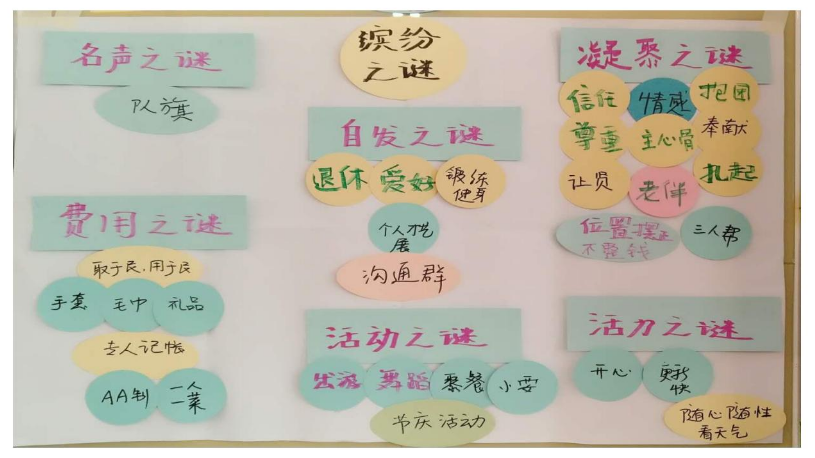 缤纷
之谜
名声之谜
队旗
费用之谜
取于民,用于民
手套
毛巾
礼品
专人记帐
AA制
一人
一菜
自发之谜
退休
爱好
锻练
健身
个人才艺
展
沟通群
活动之谜
出游
舞蹈
聚餐
小耍
节庆活动
凝聚之谜
信任
情感
抱团
尊重
主心骨
奉献
让贤
老伴
扎起
位置摆正
不要钱
三人帮
活力之谜
开心
更新
快
随心随性
看天气